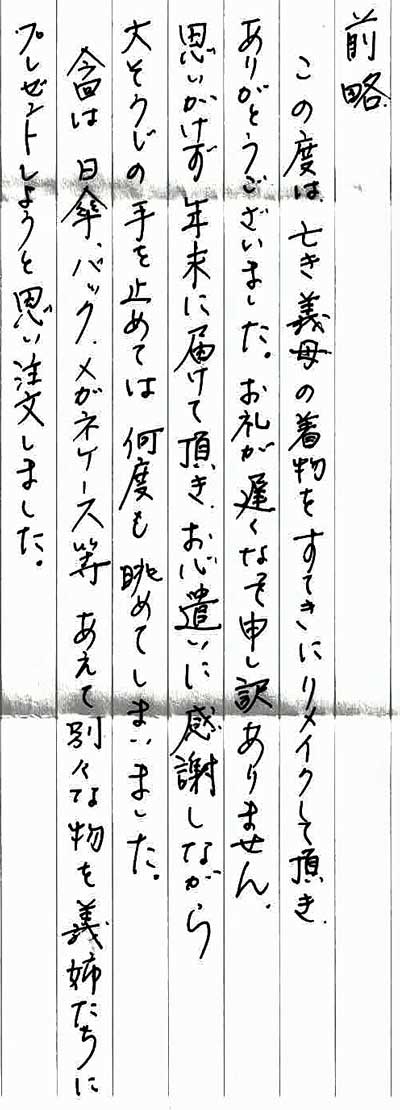 前略
この度は 亡き義母の着物をすてきにリメイクして頂き、
ありがとうございました。お礼が遅くなって申し訳ありません。
思いがけず 年末に届けて頂き、お心遣いに感謝しながら
大そうじの手を止めては 何度も眺めてしまいました。
今回は 日傘、バック、メガネケース等 あえて別々な物を義姉たちに
プレゼントしようと思い注文しました。